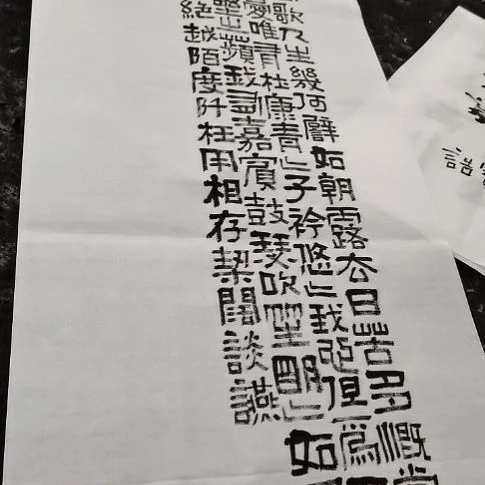 歌人生幾何譬如朝露去日苦多慨當
憂唯有杜康青〻子衿悠〻我心但為
野之蘋我有嘉賓鼓瑟吹笙明〻如
絕越陌度阡枉用相存契闊談讌
語